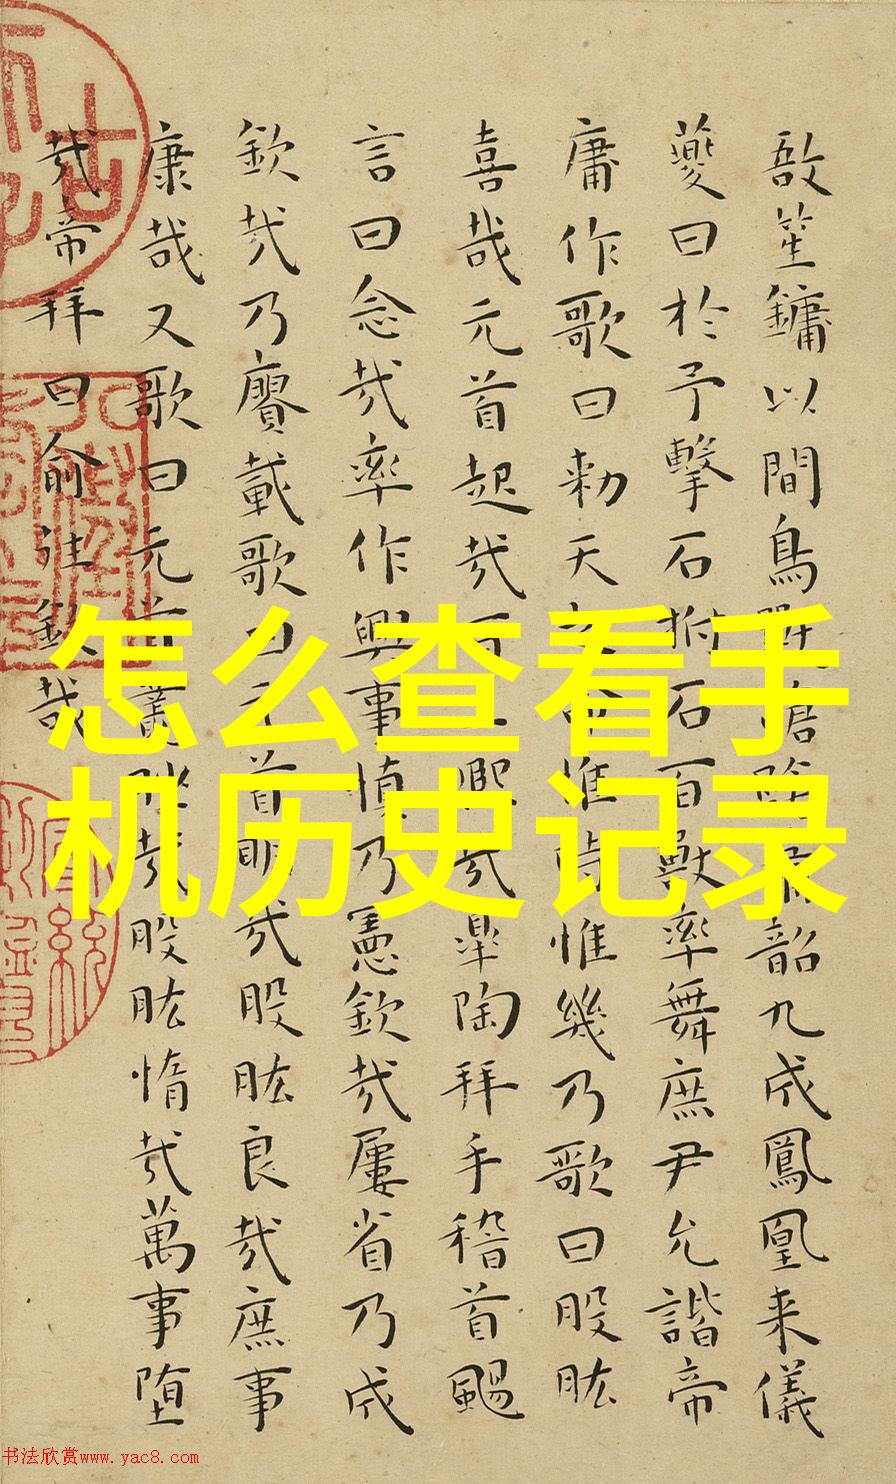 敔笙鏞以間鳥韶九成鳳凰来儀
夔曰於予擊石拊石百獸率舞庶尹允諧帝
庸作歌曰勑天之命惟時惟幾乃歌曰股肱
喜哉元首起哉百工熙哉皋陶拜手稽首颺
言曰念哉率作興事慎乃憲欽哉屢省乃成
欽哉乃賡載歌曰元首明哉股肱良哉庶事
康哉又歌曰元首叢脞哉股肱惰哉萬事堕
哉帝拜曰俞往欽哉
怎么查看手
机历史记录
书法欣赏www.yac8.com